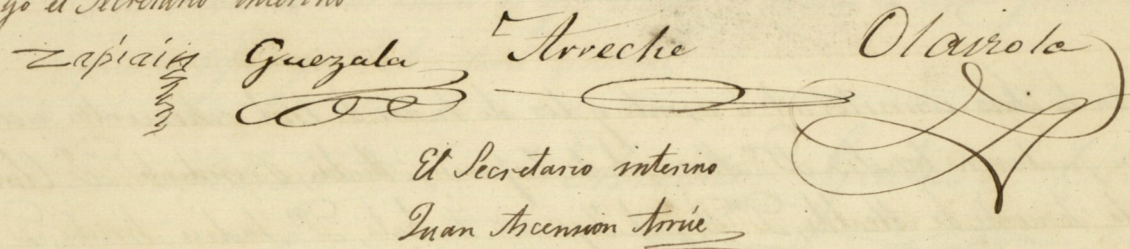 yo el Secretario interino
Zapiain Guezala Arreche Olaizola
El Secretario interino
Juan Ascension Arrúe